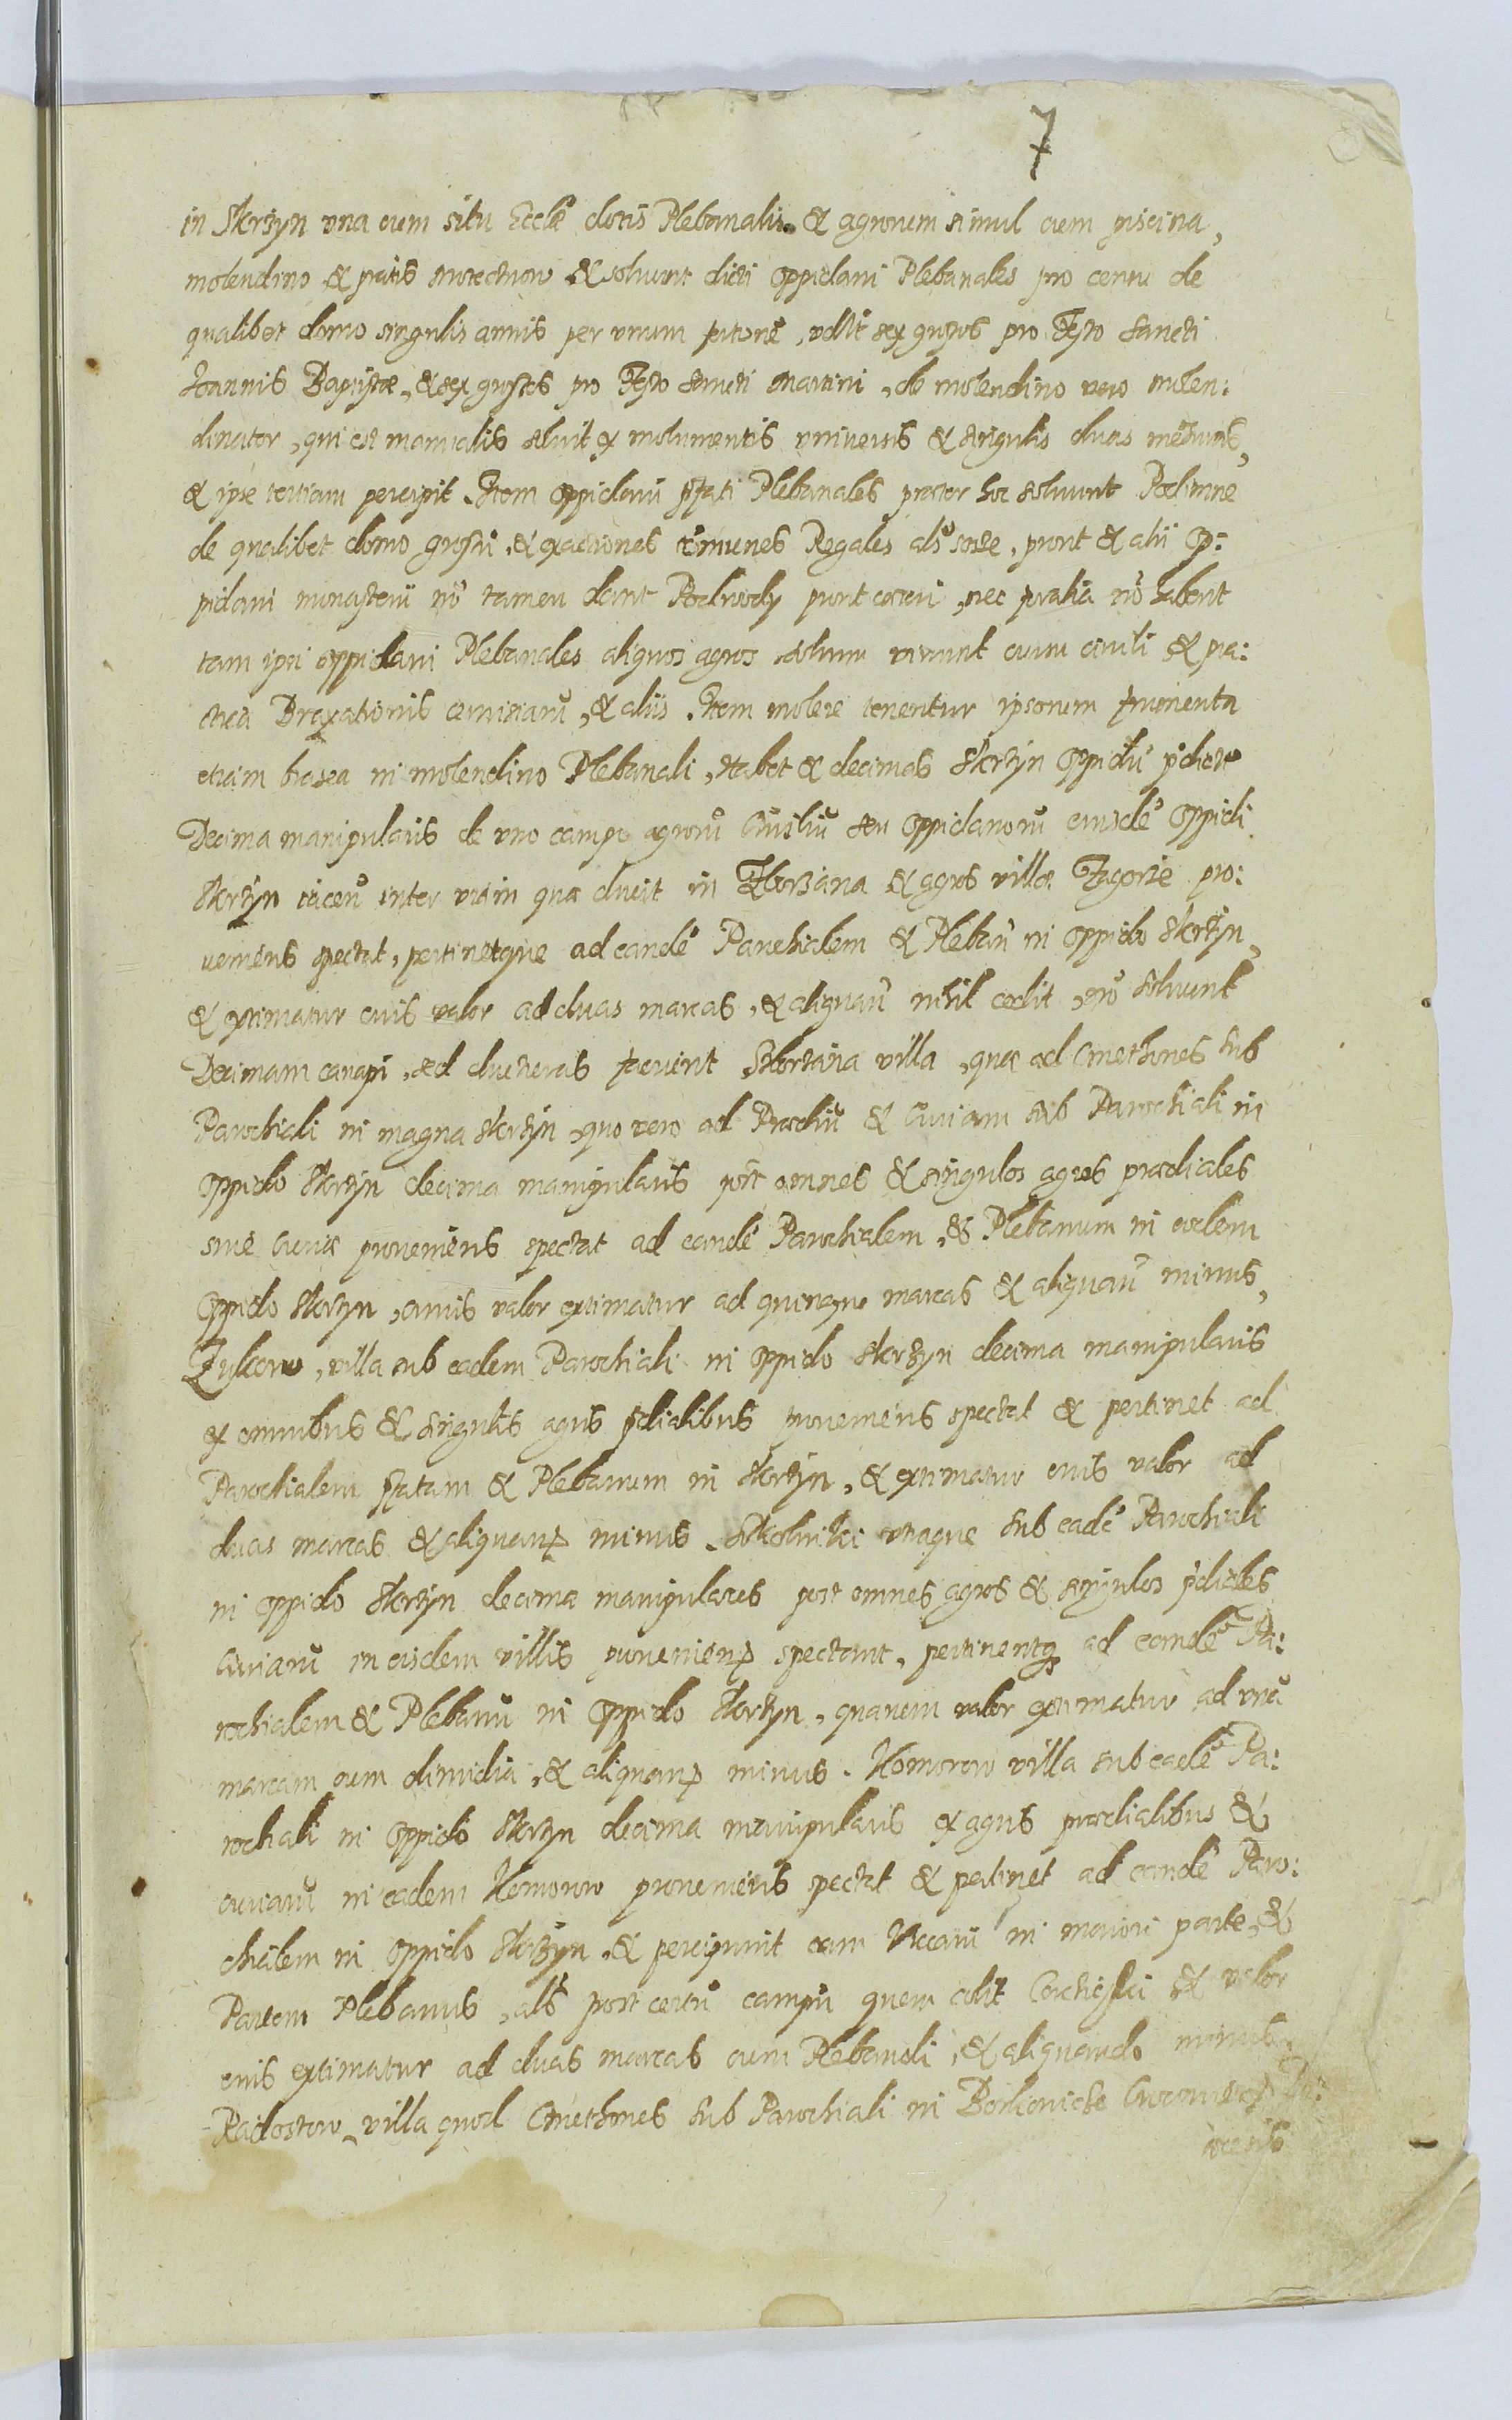 7
in Skrzyn una cum situ Eccłæ dotis Plebanalis & agrorum simul cum piscina,
molendino & pratis & solvunt dicti oppidani Plebanales pro censu de
qualibet domo singulis annis per unum fertonē, vdłt sex grossos pro Festo Sancti
Ioannis Baptistæ, & sex grossos pro Festo Sancti Martini, de molendino vero molen:
dinator, qui est manualis solvit ex molumentis universis & singulis duas mēsuras,
& ipse tertiam percipit. Item oppidani pſati Plebanales præter hoc solvunt Podimne
de qualibet domo grossū, & exactiones cōmunes Regales als sosse, prout & alii Op:
pidani monasterii nō tamen dant Podwody prout cæteri, nec prælia nō habent
tam ipsi oppidani Plebanales aliquos agros solum vivunt cum civili & pra:
ctica Braxationis cervisiarū, & aliis. Item molere tenentur ipsorum frumenta
etiam brasea in molendino Plebanali, Habet & decimas Skrzyn oppidū pdictū
Decima manipularis de uno campo agrorū Civiliū seu oppidanorū eiusdē oppidi
Skrzyn iacen inter viam quæ ducit in Zborzana & agros villæ Zagorze pro:
veniens spectat, pertinetque ad eandē Parochialem & Plebanū in oppido Skrzyn,
& extimatur eius valor ad duas marcas, & aliquan nihil cedit, nō solvunt
Decimam canapi, sed ducturas faciunt, Zborzana villa, quæ ad Cmethones sub
Parochiali in magna Skrzyn, quo vero ad Prædiū & Curiam sub Parochiali in
oppido Skrzyn decima manipularis post omnes & singulos agros prædiales
sive Curiæ proveniens spectat ad eandē Parochialem, & Plebanum in eodem
oppido Skrzyn, cuius valor extimatur ad quinque marcas & aliquan minus,
Zukow, villa sub eadem Parochiali in oppido Skrzyn decima manipularis
ex omnibus & singulis agris pdialibus proveniens spectat & pertinet ad
Parochialem pſatam & Plebanum in Skrzyn, & extimatur eius valor ad
duas marcas & aliquan minus. Sokolniki utraque sub eadē Parochiali
in oppido Skrzyn decimæ manipulares post omnes agros & singulos pdiales
Curiarū in eisdem villis provenien spectant, pertinentq ad eandē Pa:
rochialem & Plebanū in oppido Skrzyn, quarum valor extimatur ad unā
marcam cum dimidia, & aliquan minus. Komorow villa sub eadē Pa:
rochiali in oppido Skrzyn decima manipularis ex agris prædialibus &
curiarū in eadem Komorow proveniens spectat & pertinet ad eandē Paro:
chialem in oppido Skrzyn, & percipiunt eam Vicarii in maiori parte, &
Partem Plebanus, als post certū campū quem colit & valor
eius extimatur ad duas marcas cum Plebanali, & aliquando minus.
Radostow, villa quod Cmethones sub Parochiali in Borkowicze